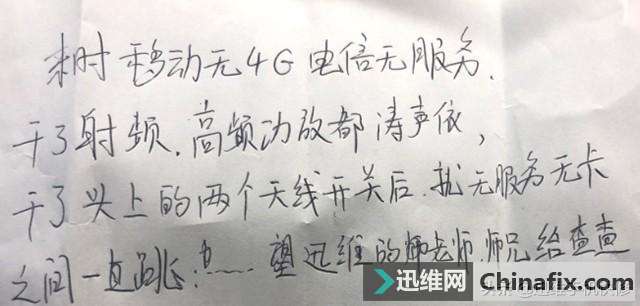 来时移动无4G电信无服务.
干了射频.高频功放都涛声依,
干了头上的两个天线开关后.就无服务无卡
之间一直跳.......望迅维的师老师.师兄给查查
迅维网 Chinafix.com